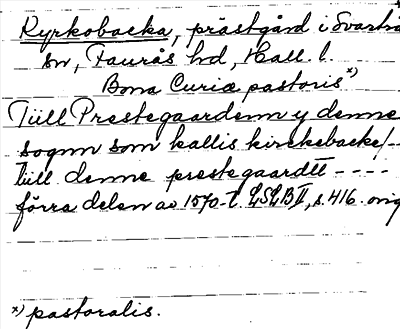 Kyrkobacka, prästgård i Svartrå
sn, Faurås hd, Hall. l.
Bona Curiæ pastoris *)
Tiill Prestegaardenn y denne
sognn som kallis kirckebacke/--
tiill denne prestegaardtt ----
förra delen av 1570-t. LSLB II, s. 416. orig
*) pastoralis.